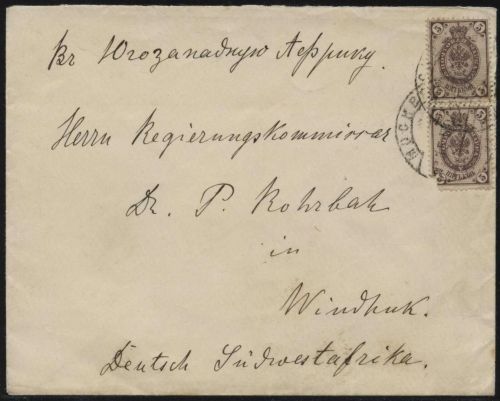 въ Югозападную Африку.
Herrn Regierungskommissar
Dr. P. Rohrbah
in
Windhuk.
Deutsch Südwestafrika.
5 5
5 5
МОСКВ
5 5
5